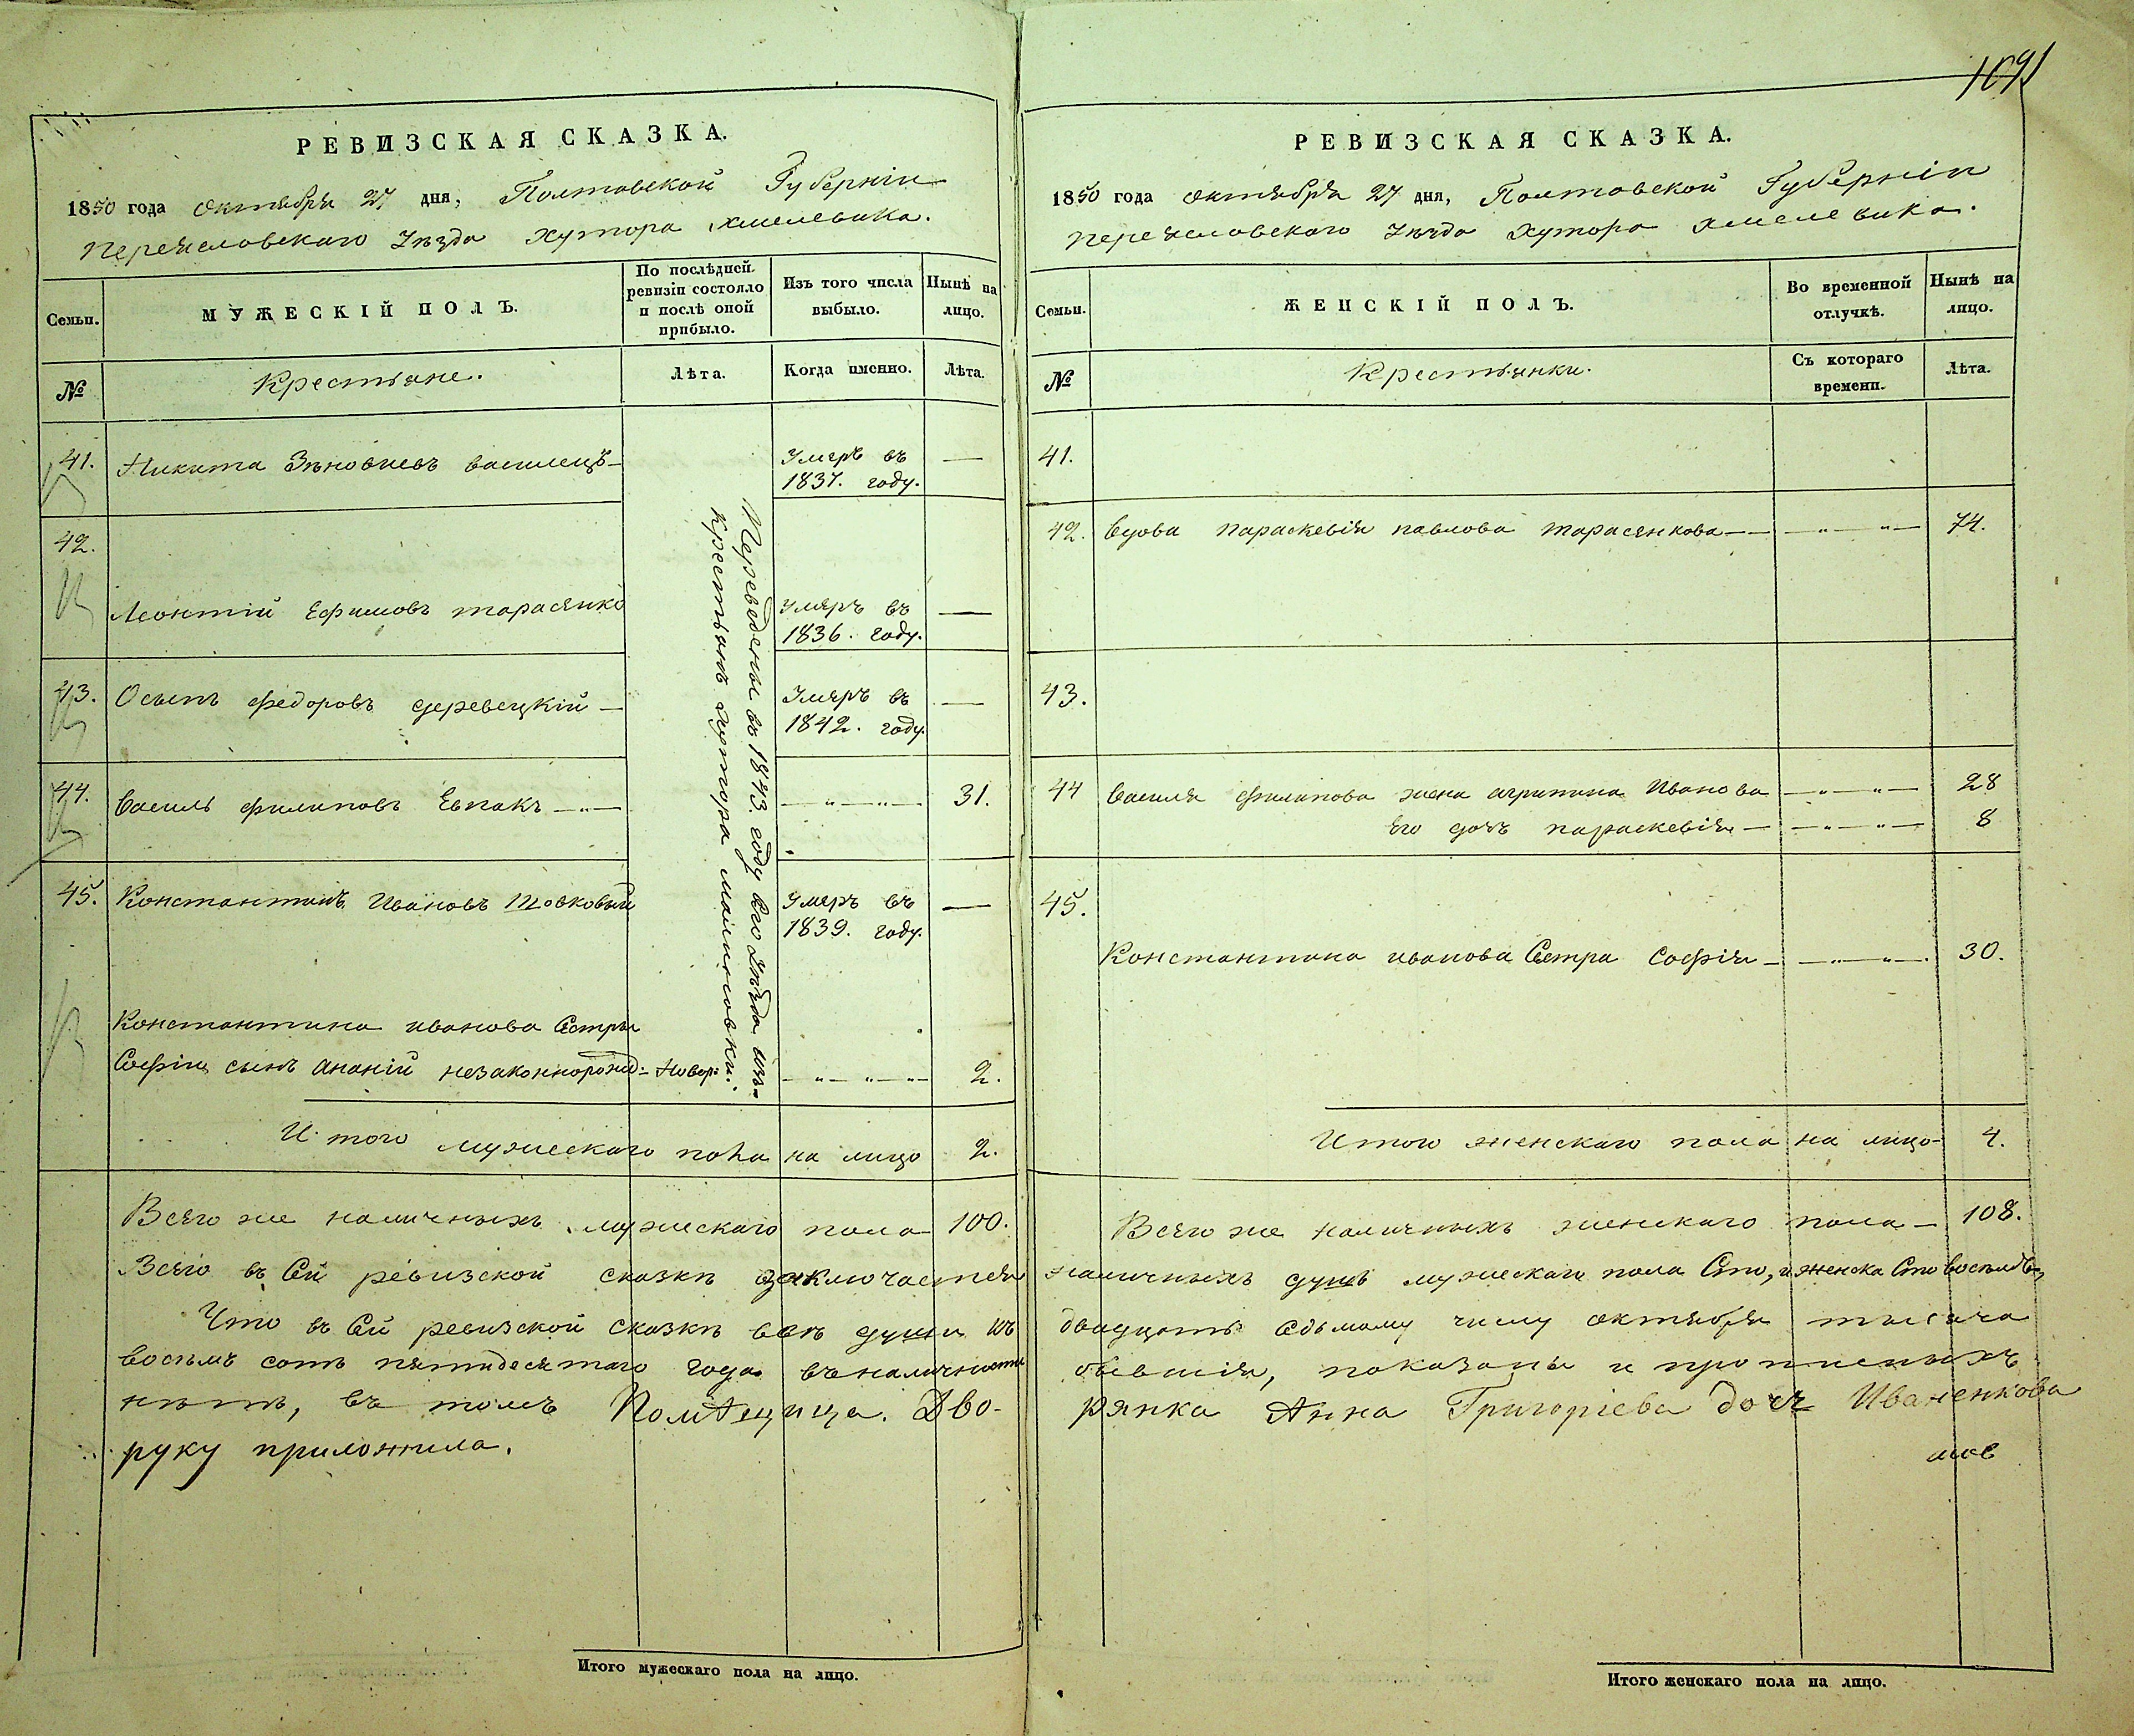 1091
РЕВИЗСКАЯ СКАЗКА.
1850 года Октября 27 дня, Полтавской Губерніи
Переяславскаго Уѣзда Хутора Хмелевика.
Семьи.
МУЖЕСКІЙ ПОЛЪ.
По послѣдней ревизіи состояло и послѣ оной прибыло.
Изъ того числа выбыло.
Нынѣ на лицо.
№
Крестьяне.
Лѣта.
Когда именно.
Лѣта.
Переведены въ 1843 году того уѣзда изъ
крестьянъ хутора Малиновки:
41. Никита Зѣновиевъ василецъ — Умеръ въ 1837. году. —
42.
Леонтій Ефимовъ тарасенко Умеръ въ 1836. году. —
43. Осипъ федоровъ деревецкій — Умеръ въ 1842. году. —
44. Василь филиповъ Евпакъ — " — — " — " — 31.
45. Константинъ Ивановъ Шовковый Умеръ въ 1839. году. —
Константина иванова Сестры
Софіи сынъ Ананій незаконнорожд: Новор: — " — " — " — 2.
Итого мужескаго пола на лицо 2.
Всего же наличныхъ мужескаго пола 100.
Всего въ Сей ревизской сказкѣ заключается
Что въ Сей ревизской сказкѣ всѣ души къ
восемь сотъ пятидесятаго года въ наличности
нѣтъ, въ томъ Помѣщица. Дво-
руку приложила.
Итого мужескаго пола на лицо.
РЕВИЗСКАЯ СКАЗКА.
1850 года Октября 27 дня, Полтавской Губерніи
Переяславскаго Уѣзда Хутора Хмелевика.
Семьи.
ЖЕНСКІЙ ПОЛЪ.
Во временной отлучкѣ.
Нынѣ на лицо.
№
Крестьянки.
Съ котораго времени.
Лѣта.
41.
42. Вдова параскевія павлова тарасенкова — — " — " — 74.
43.
44 Василя филипова жена агрипина Иванова — " — " — 28
Его дочь параскевія — — " — " — 8
45.
Константина иванова Сестра Софія — — " — " — 30.
Итого женскаго пола на лицо 4.
Всего же наличныхъ женскаго пола — 108.
наличныхъ душъ мужескаго пола Сто, и женска Сто восемь
двадцать седьмому числу октября тысяча
бывшія, показаны и прописныхъ
рянка Анна Григоріева дочь Иваненкова
Итого женскаго пола на лицо.